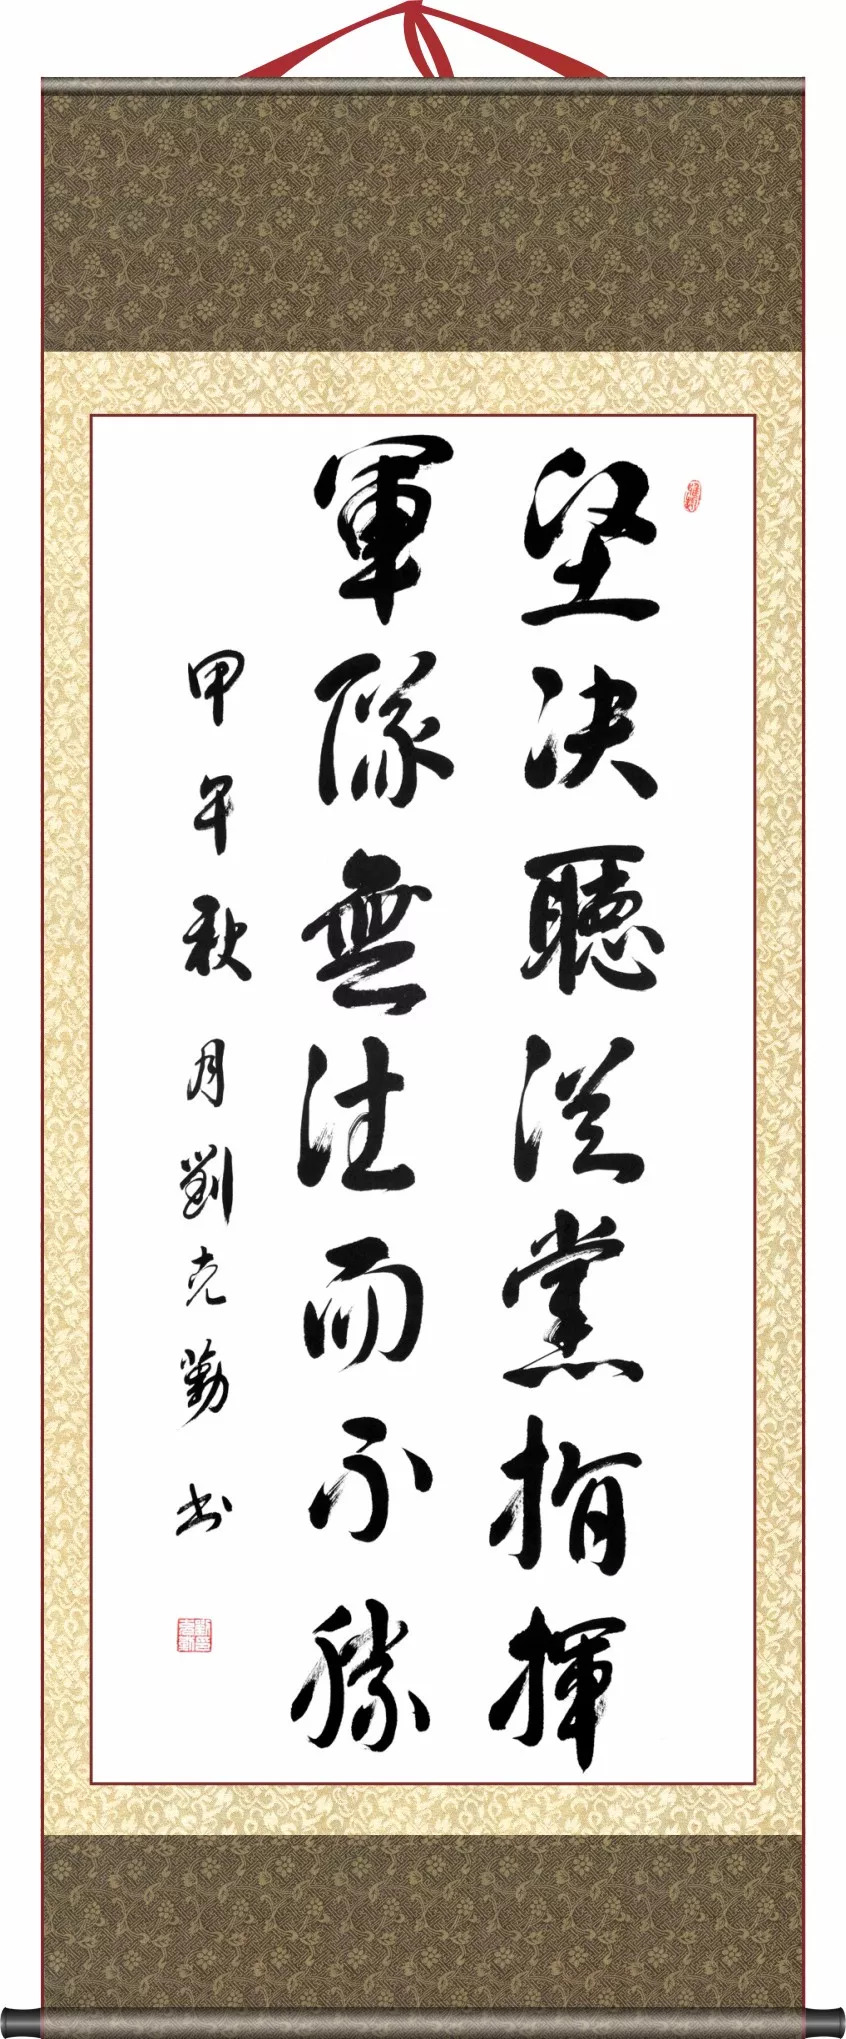 坚决聽從黨指揮
軍隊無往而不勝
甲午秋月劉克勤书